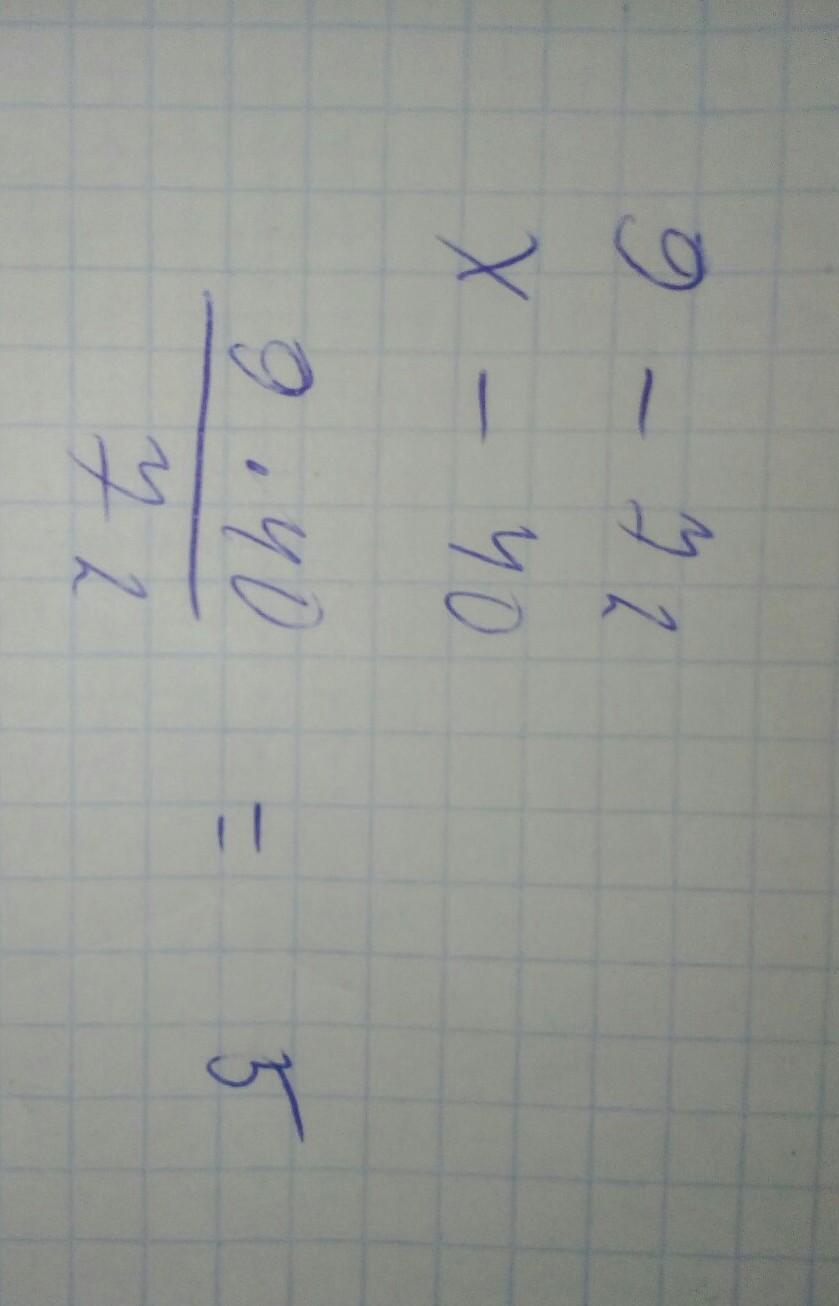 9 - 72
x - 40
9 . 40
72
= 5